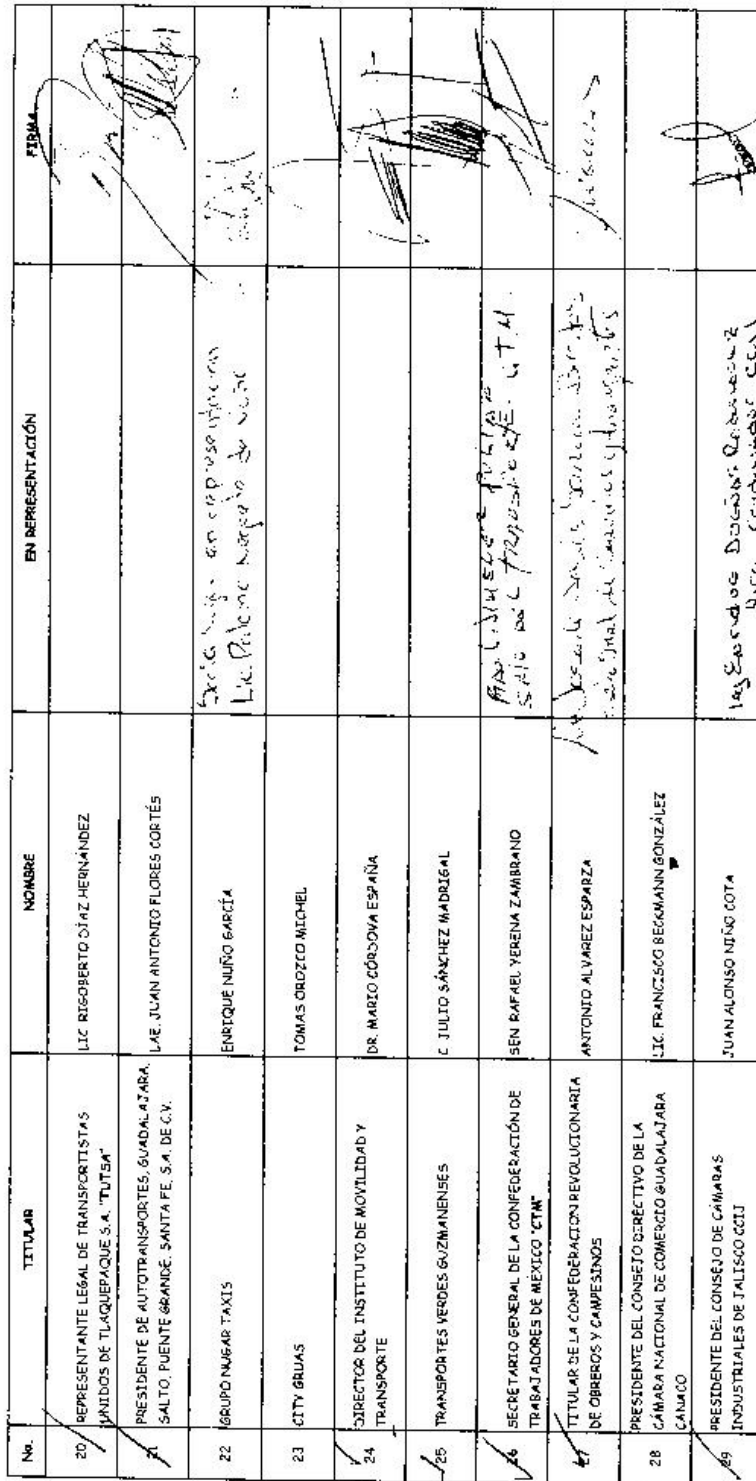 No. TITULAR NOMBRE EN REPRESENTACIÓN FIRMA
20 REPRESENTANTE LEGAL DE TRANSPORTISTAS
UNIDOS DE TLAQUEPAQUE S.A. "TUTSA"
LIC RIGOBERTO DÍAZ HERNÁNDEZ
21 PRESIDENTE DE AUTOTRANSPORTES, GUADALAJARA,
SALTO, PUENTE GRANDE, SANTA FE, S.A. DE C.V.
LAE. JUAN ANTONIO FLORES CORTÉS
22 GRUPO NUGAR TAXIS
ENRIQUE NUÑO GARCÍA
en representación
Lic.
23 CITY GRUAS
TOMAS OROZCO MICHEL
24 DIRECTOR DEL INSTITUTO DE MOVILIDAD Y
TRANSPORTE
DR. MARIO CÓRDOVA ESPAÑA
25 TRANSPORTES VERDES GUZMANENSES
C JULIO SÁNCHEZ MADRIGAL
26 SECRETARIO GENERAL DE LA CONFEDERACIÓN DE
TRABAJADORES DE MÉXICO "CTM"
SEN RAFAEL YERENA ZAMBRANO
27 TITULAR DE LA CONFEDERACION REVOLUCIONARIA
DE OBREROS Y CAMPESINOS
ANTONIO ALVAREZ ESPARZA
28 PRESIDENTE DEL CONSEJO DIRECTIVO DE LA
CÁMARA NACIONAL DE COMERCIO GUADALAJARA
CANACO
LIC. FRANCISCO BECKMANN GONZÁLEZ
29 PRESIDENTE DEL CONSEJO DE CÁMARAS
INDUSTRIALES DE JALISCO CCIJ
JUAN ALONSO NIÑO COTA